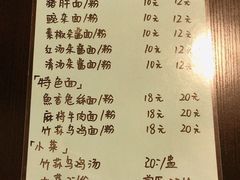 猪肝面/粉 10元 12元
豌杂面/粉 10元 12元
素椒杂酱面/粉 10元 12元
红汤杂酱面/粉 10元 12元
清汤杂酱面/粉 10元 12元
「特色面」
鱼香兔丝面/粉 18元 20元
麻辣牛肉面/粉 18元 20元
竹荪乌鸡面/粉 18元 20元
「小菜」
竹荪乌鸡汤 20元/盅